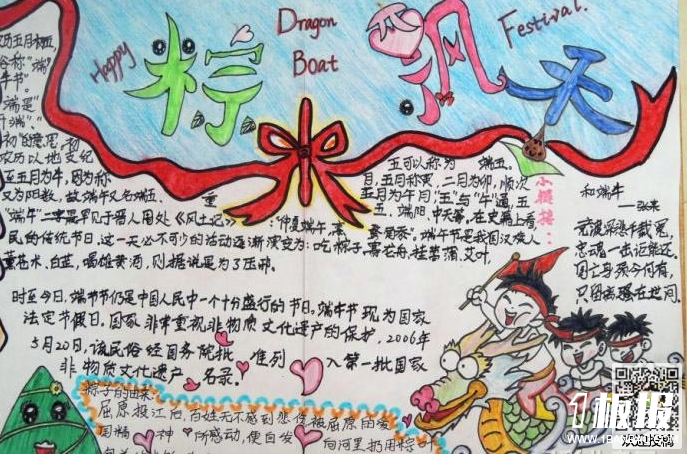 Happy
Dragon
Boat
Festival.
粽飘天
农历五月初五,
俗称"端
午节"。
"端是"
"开端"、
"初"的意思,初
农历以地支纪
至五月为午,因为称
又为阳数,故端午又名端五、重
五可以称为端五。
月,五月称
二月为卯,顺次
五月为午月"五"与"午"通,五
五、端阳、中天等,在史籍上看
"端午"二字最早见于晋人周处《风土记》:"仲夏端午,
端午节是我国汉族人
民的传统节日,这一天必不可少的活动逐渐演变为:吃粽子,赛龙舟,挂菖蒲、艾叶,
薰苍术、白芷,喝雄黄酒,则据说是为了压邪。
时至今日,端午节仍是中国人民中一个十分盛行的节日。端午节现为国家
法定节假日。国家非常重视非物质文化遗产的保护,2006年
5月20日,该民俗经国务院批准列入第一批国家
非物质文化遗产名录。
小链接:
和端午
——张耒
忠魂一去讵能还。
国亡身殒今何有,
只留离骚在世间。
粽子的由来
屈原投江后,百姓无不感到悲伤,被屈原的爱
国精神所感动,便自发向河里扔用粽叶
板报